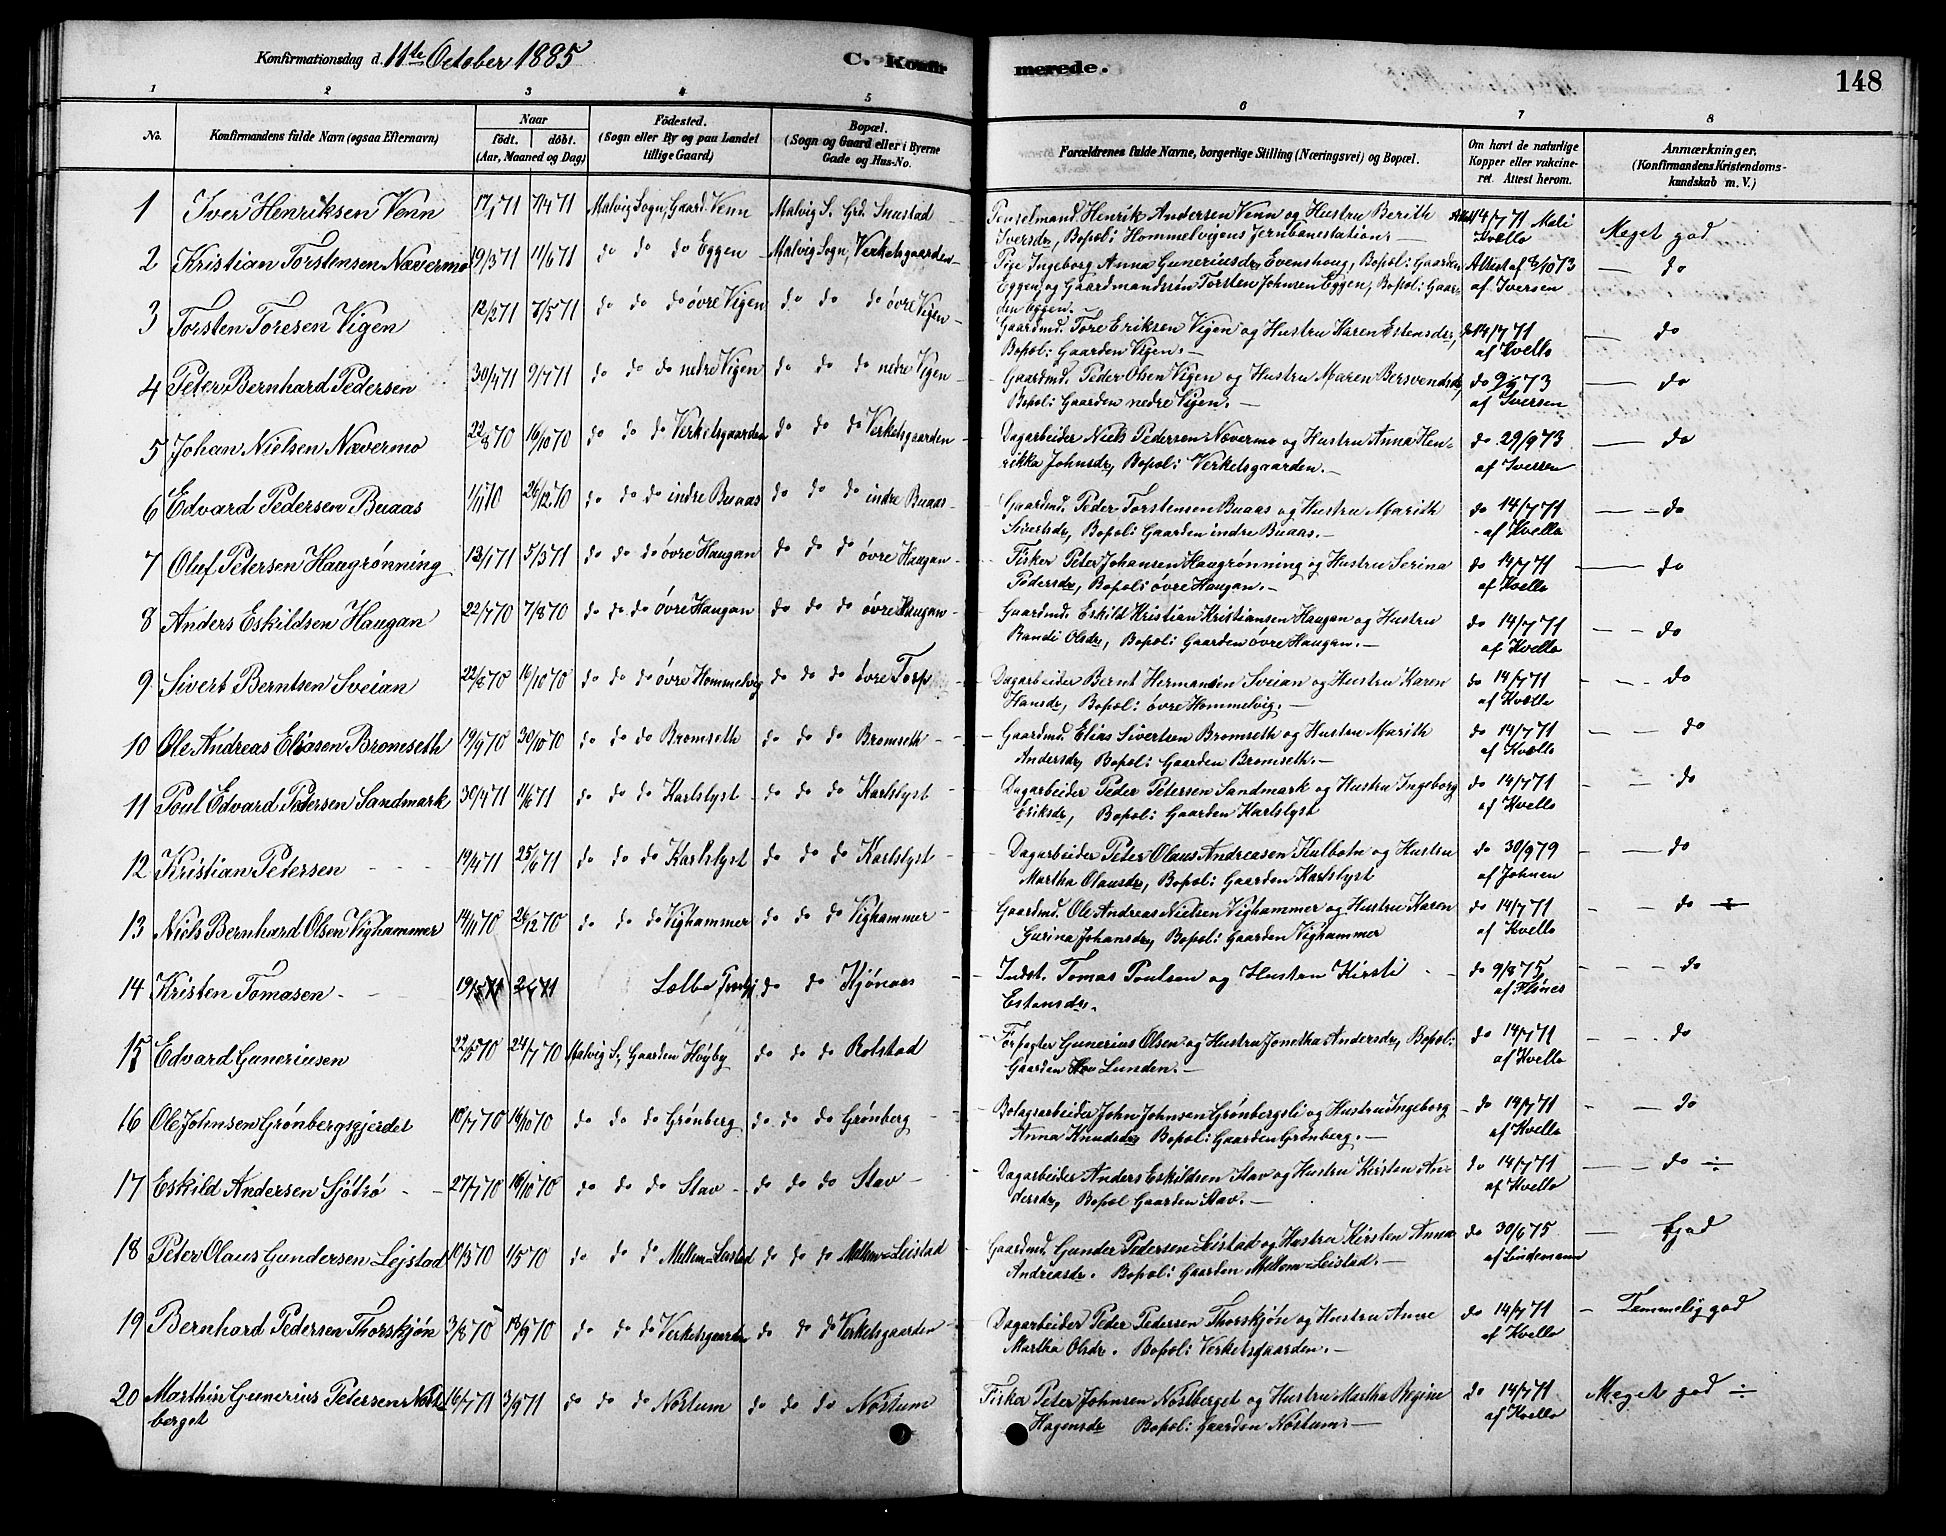 Konfirmationsdag d. 11te October 1885 C. Konfirmerede. 148
1 2 3 4 5 6 7 8
No. Konfirmandens fulde Navn (ogsaa Efternavn) Naar født. døbt. (Aar, Maaned og Dag) Fødested. (Sogn eller By og paa Landet tillige Gaard) Bopæl. (Sogn og Gaard eller i Byerne Gade og Hus-No. Forældrenes fulde Navne, borgerlige Stilling (Næringsvei) og Bopæl. Om havt de naturlige Kopper eller vakcineret. Attest herom. Anmærkninger, (Konfirmandens Kristendomskundskab m. V.)
1 Iver Henriksen Venn 17/1 71 7/4 71 Malvig Sogn, Gaard. Venn Malvig S. Grd. Henrik Andersen Venn og Hustru Berith 14/7 71
Iversdr, Bopæl: Hommelvigens Jernbanestation. — Kvello Meget god
2 Kristian Torstensen Nævermo 19/3 71 11/6 71 do do do Eggen Malvig Sogn, Verkelsgaarden Pige Ingeborg Anna Guneriusdr, Evenshaug, Bopæl: Gaarden Attest af 8/10 73 — do
Eggen, og Gaardmandssøn Torsten Johnsen Eggen, Bopæl: Gaar- af Iversen
den Eggen. —
3 Torsten Toresen Vigen 12/2 71 7/5 71 do do do øvre Vigen do do do øvre Vigen Gaardmd. Tore Eriksen Vigen og Hustru Karen Estensdr, do 14/7 71 — do
Bopæl: Gaarden Vigen. — af Kvello
4 Peter Bernhard Pedersen 30/4 71 9/7 71 do do do nedre Vigen do do do nedre Vigen Gaardmd. Peder Olsen Vigen og Hustru Maren Bersvendsdr, do 73 — do
Bopæl: Gaarden nedre Vigen. — af Iversen
5 Johan Nielsen Nævermo 22/8 70 16/10 70 do do do Verkelsgaarden do do do Verkelsgaarden Dagarbeider Niels Pedersen Nævermo og Hustru Anna Hen- do 29/9 73 — do
rikka Johnsdr, Bopæl: Verkelsgaarden. — af Iversen
6 Edvard Pedersen Buaas 1/11 70 26/12 70 do do do indre Buaas do do do indre Buaas Gaardmd. Peder Torstensen Buaas og Hustru Marith do 14/7 71 — do
Sivertsdr, Bopæl: Gaarden indre Buaas. — af Kvello
7 Oluf Petersen Haugrønning 13/1 71 5/3 71 do do do øvre Haugan do do do øvre Haugan Fisker Peter Johansen Haugrønning og Hustru Serina do 14/7 71 — do
Pedersdr, Bopæl: øvre Haugan. — af Kvello
8 Anders Eskildsen Haugan 22/7 70 7/8 70 do do do øvre Haugan do do do øvre Haugan Gaardmd. Eskild Kristian Kristiansen Haugan og Hustru do 14/7 71 — do
Randi Olsdr, Bopæl: Gaarden øvre Haugan. — af Kvello
9 Sivert Berntsen Sveian 22/8 70 16/10 70 do do do øvre Hommelvig do do do øvre Torp Dagarbeider Bernt Hermansen Sveian og Hustru Karen do 14/7 71 — do
Hansdr, Bopæl: øvre Hommelvig. — af Kvello
10 Ole Andreas Eliasen Bromseth 19/9 70 30/10 70 do do do Bromseth do do do Bromseth Gaardmd. Elias Sivertsen Bromseth og Hustru Marith do 14/7 71 — do
Andersdr, Bopæl: Gaarden Bromseth. — af Kvello
11 Poul Edvard Pedersen Sandmark 30/4 71 11/6 71 do do do Karlslyst do do do Karlslyst Dagarbeider Peder Petersen Sandmark og Hustru Ingeborg do 14/7 71 — do
Eriksdr, Bopæl: Gaarden Karlslyst af Kvello
12 Kristian Petersen 19/4 71 25/6 71 do do do Karlslyst do do do Karlslyst Dagarbeider Peter Olaus Andreasen Kulbotn og Hustru do 30/9 79 — do
Martha Olausdr, Bopæl: Gaarden Karlslyst af Johnsen
13 Niels Bernhard Olsen Vighammer 14/11 70 26/12 70 do do do Vighammer do do do Vighammer Gaardmd. Ole Andreas Nielsen Vighammer og Hustru Karen do 14/7 71 — do
Gurina Johansdr, Bopæl: Gaarden Vighammer af Kvello
14 Kristen Tomasen Sælbo do do Kjønaas Indst. Tomas Poulsen og Hustru Kirsti do 9/8 75 — do
Estensdr. af Flønes
15 Edvard Guneriusen 22/5 70 24/7 70 Malvig S., Gaarden Høyby do do do Rotstad Forpagter Gunerius Olsen og Hustru Jonetha Andersdr, Bopæl: do 14/7 71 — do
Gaarden Lunden. — af Kvello
16 Ole Johnsen Grønbergsgjerdet 10/7 70 16/10 70 do do do Grønberg do do do Grønberg Bolagsarbeider John Johnsen Grønbergsli og Hustru Ingeborg do 14/7 71 — do
Anna Knudsdr, Bopæl: Gaarden Grønberg. — af Kvello
17 Eskild Andersen Sjøtrø 27/7 70 16/10 70 do do do Stav do do do Stav Dagarbeider Anders Eskildsen Stav og Hustru Kirsten An- do 14/7 71 — do ÷
dersdr, Bopæl Gaarden Stav. — af Kvello
18 Peter Olaus Gundersen Lejstad 10/3 70 1/5 70 do do do Mellem-Leistad do do do Mellem-Leistad Gaardmd. Gunder Pedersen Leistad og Hustru Kirsten Anna do 30/6 75 — God
Andreasdr. Bopæl: Gaarden Mellom-Leistad. — af Lindemann
19 Bernhard Pedersen Thorskjøn 3/8 70 18/9 70 do do do Verkelsgaarden do do do Verkelsgaarden Dagarbeider Peder Pedersen Thorskjøn og Hustru Anne do 14/7 71 — Temmelig god
Martha Olsdr. Bopæl: Verkelsgaarden. — af Kvello
20 Marthin Gunerius Petersen Nøst- 16/7 71 3/9 71 do do do Nøstum do do do Nøstum Fisker Peter Johnsen Nøstberget og Hustru Martha Regine do 14/7 71 Meget god ÷
berget Hagensdr Bopæl: Gaarden Nøstum. — af Kvello